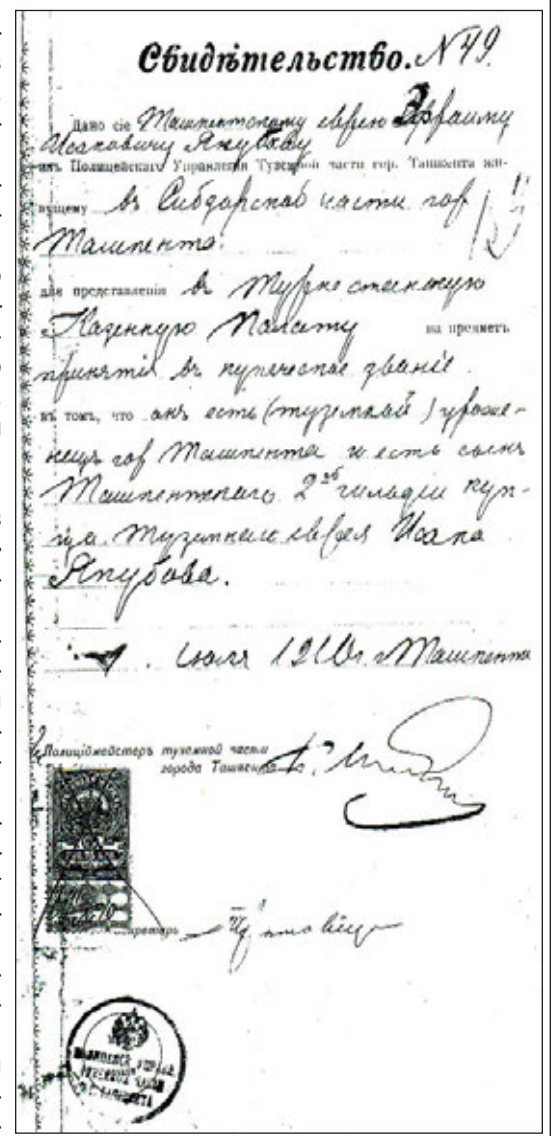 Свидѣтельство. N 49.
Дано сіе Ташкентскому еврею Эфраиму
Исаковичу Якубову
изъ Полицейскаго Управленія Туземной части гор. Ташкента жи-
вущему въ Сибзарской части гор
Ташкента.
для представленія въ Туркестанскую
Казенную Палату на предметъ
принятія въ купеческое званіе.
въ томъ, что онъ есть (туземный) уроже-
нецъ гор Ташкента и есть сынъ
Ташкентскаго 2ой гильдіи куп-
ца туземнаго еврея Исака
Якубова.
Іюля 1910 г. Ташкента
Полиціймейстеръ туземной части
города Ташкента
Секретарь